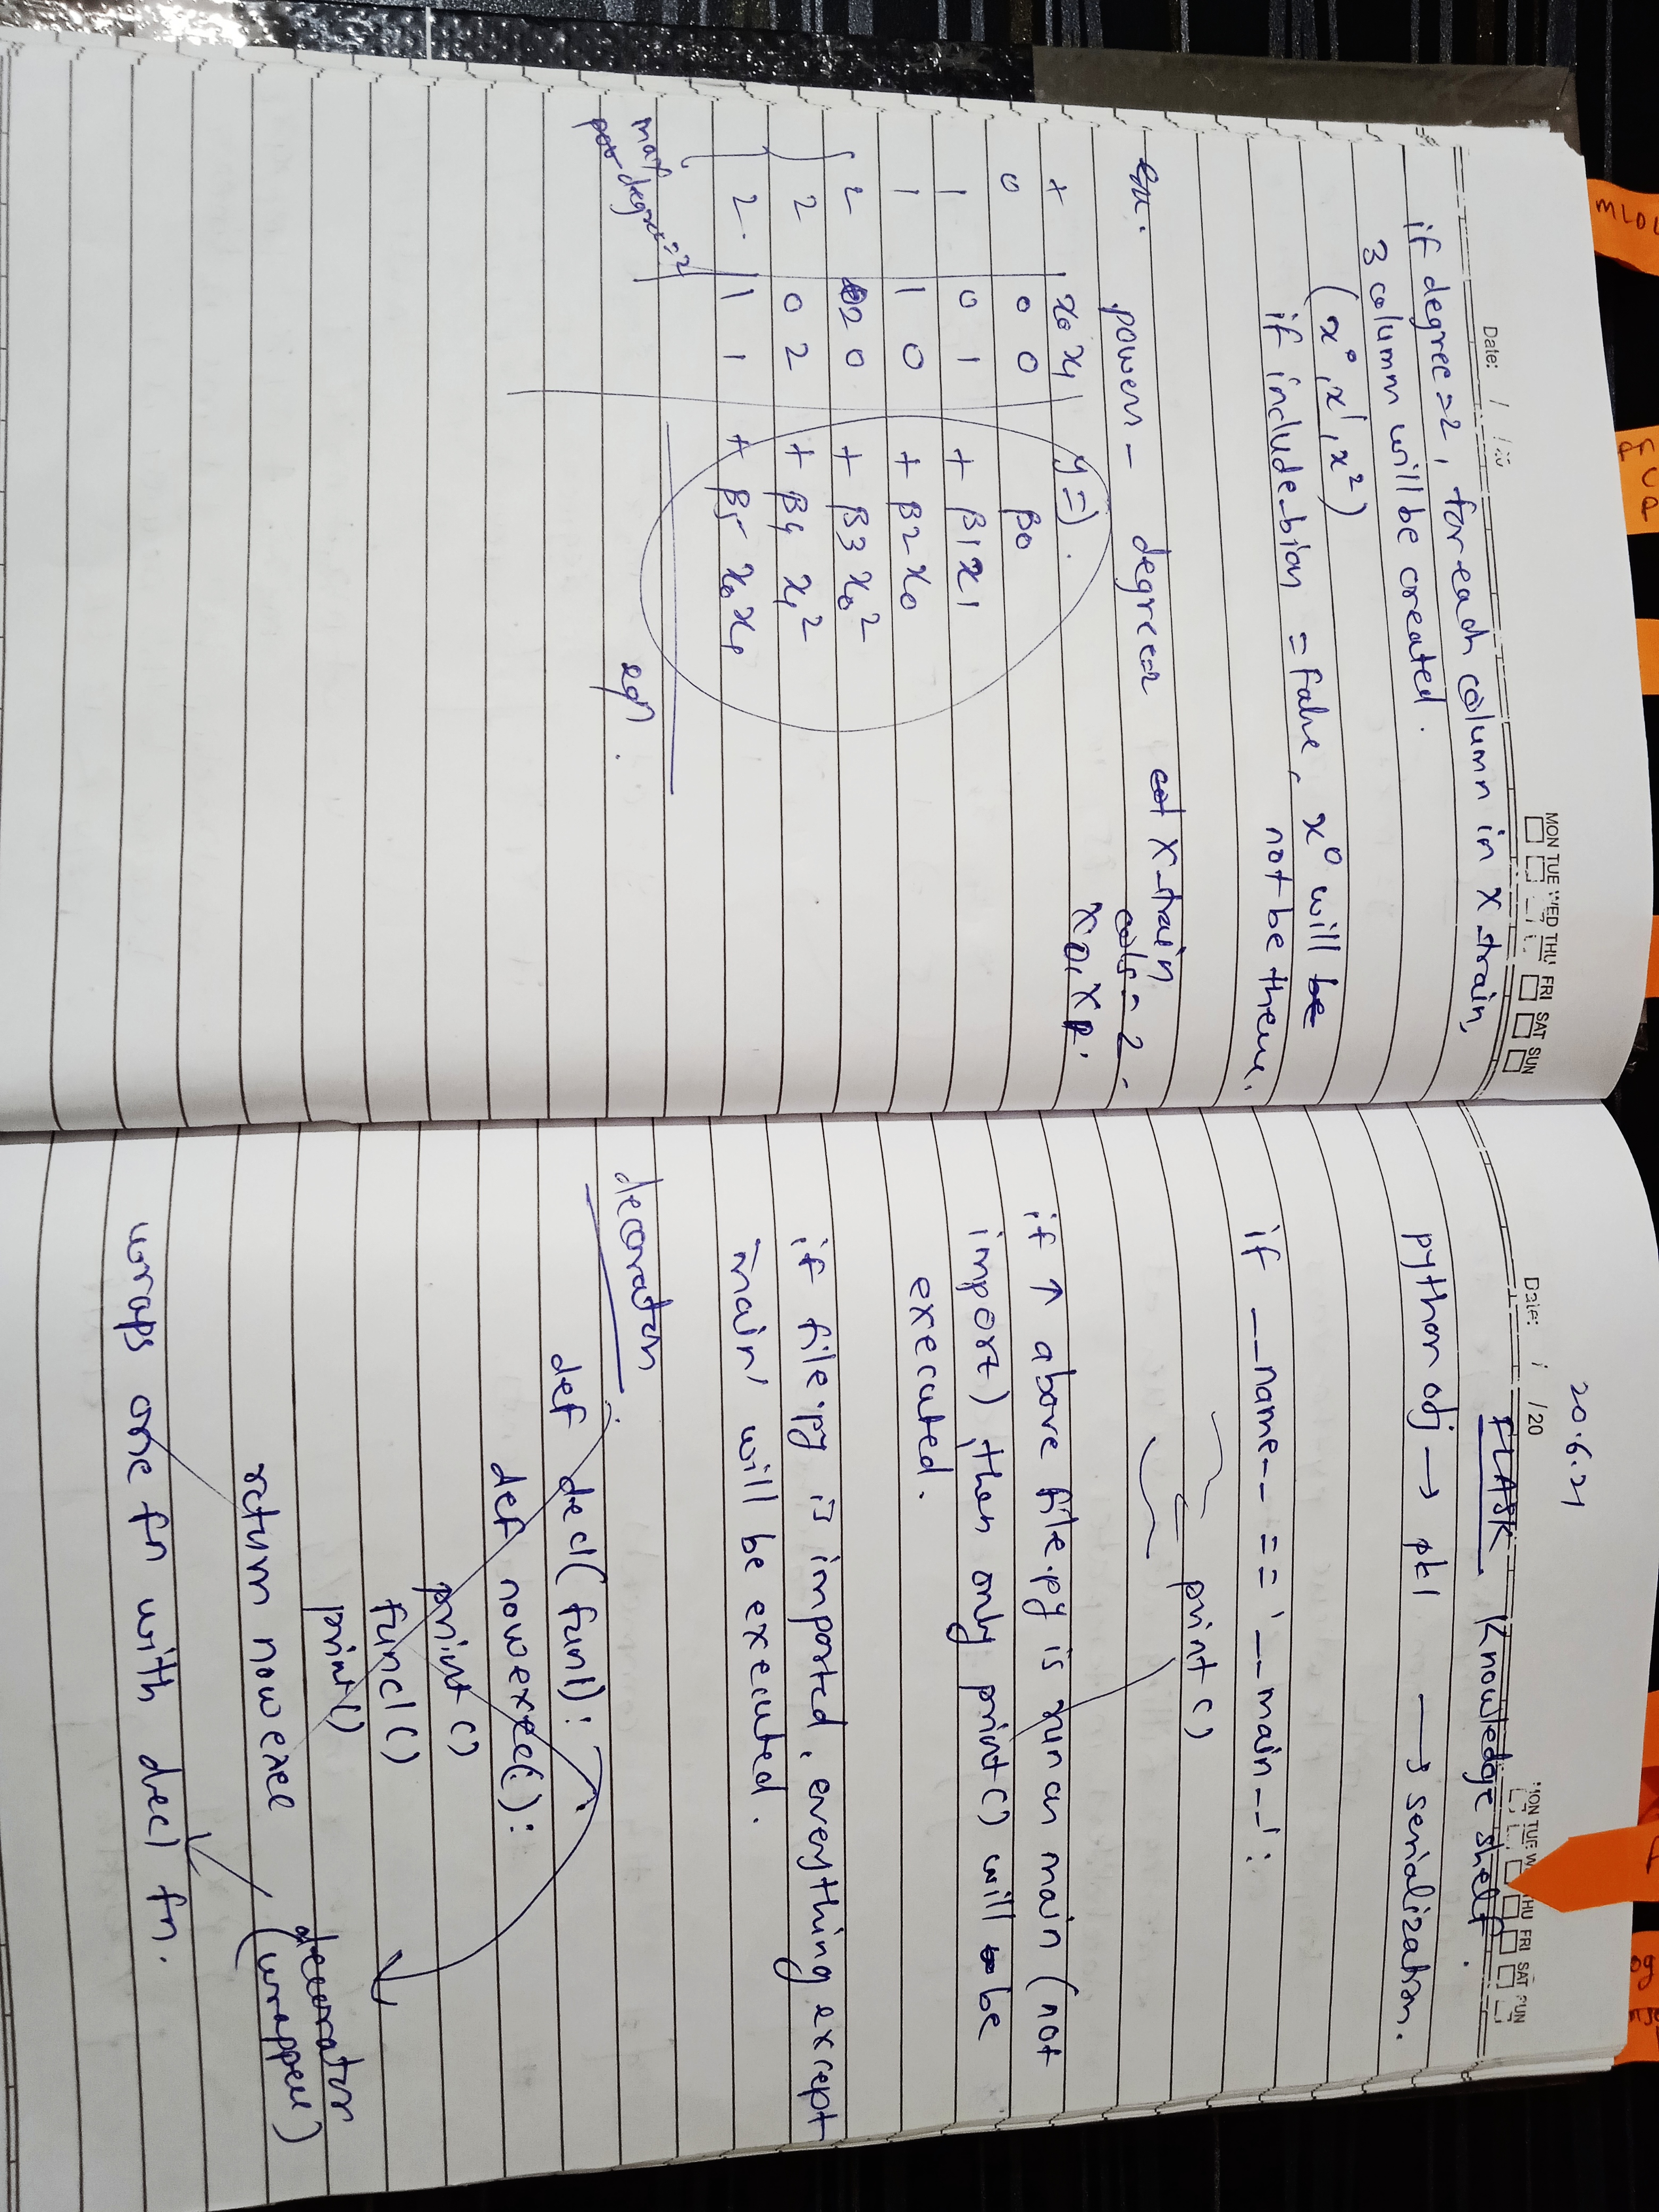 Date: / /20
MON TUE WED THU FRI SAT SUN
if degree=2, for each column in x_train,
3 column will be created.
(x⁰, x¹, x²)
if include_bias = false, x⁰ will be
not be there.
ex. powers - degree=2 X_train
cols = 2.
x0, x1.
+ x0 x1 y=).
0 0 0 β0
1 0 1 + β1x1
1 1 0 + β2x0
2 2 0 + β3x0²
2 0 2 + β4 x1²
2. 1 1 + β5 x0x1
max
degree=2
eqn.
20.6.21
Date: / /20
MON TUE W THU FRI SAT SUN
FLASK (Knowledge shelf.
python obj → pkl → serialization.
if __name__ == '__main__':
print()
if ↑ above file.py is run as main (not
import) then only print() will be
executed.
if file.py is imported, everything except
'main' will be executed.
decorator
def dec1(fun1):
def nowexec():
print()
func1()
print()
return nowexec
decorator
(wrapper)
wraps one fn with dec1 fn.